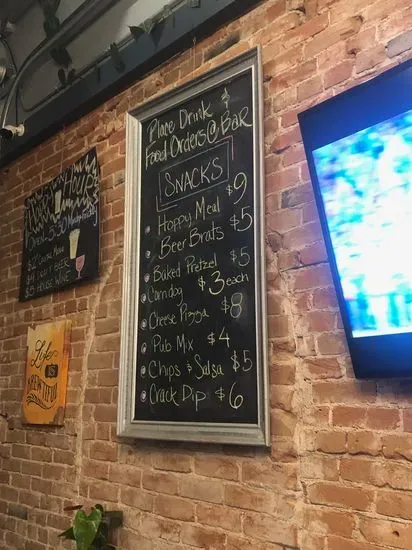 Happy Hour
Open - 5:30
Place Drink &
Food Orders @ Bar
SNACKS
Hoppy Meal $9
Beer Brats $5
Baked Pretzel $5
Corndog $3 each
Cheese Pizza $8
Pub Mix $4
Chips & Salsa $5
Crack Dip $6
Life
IS
BREWTIFUL